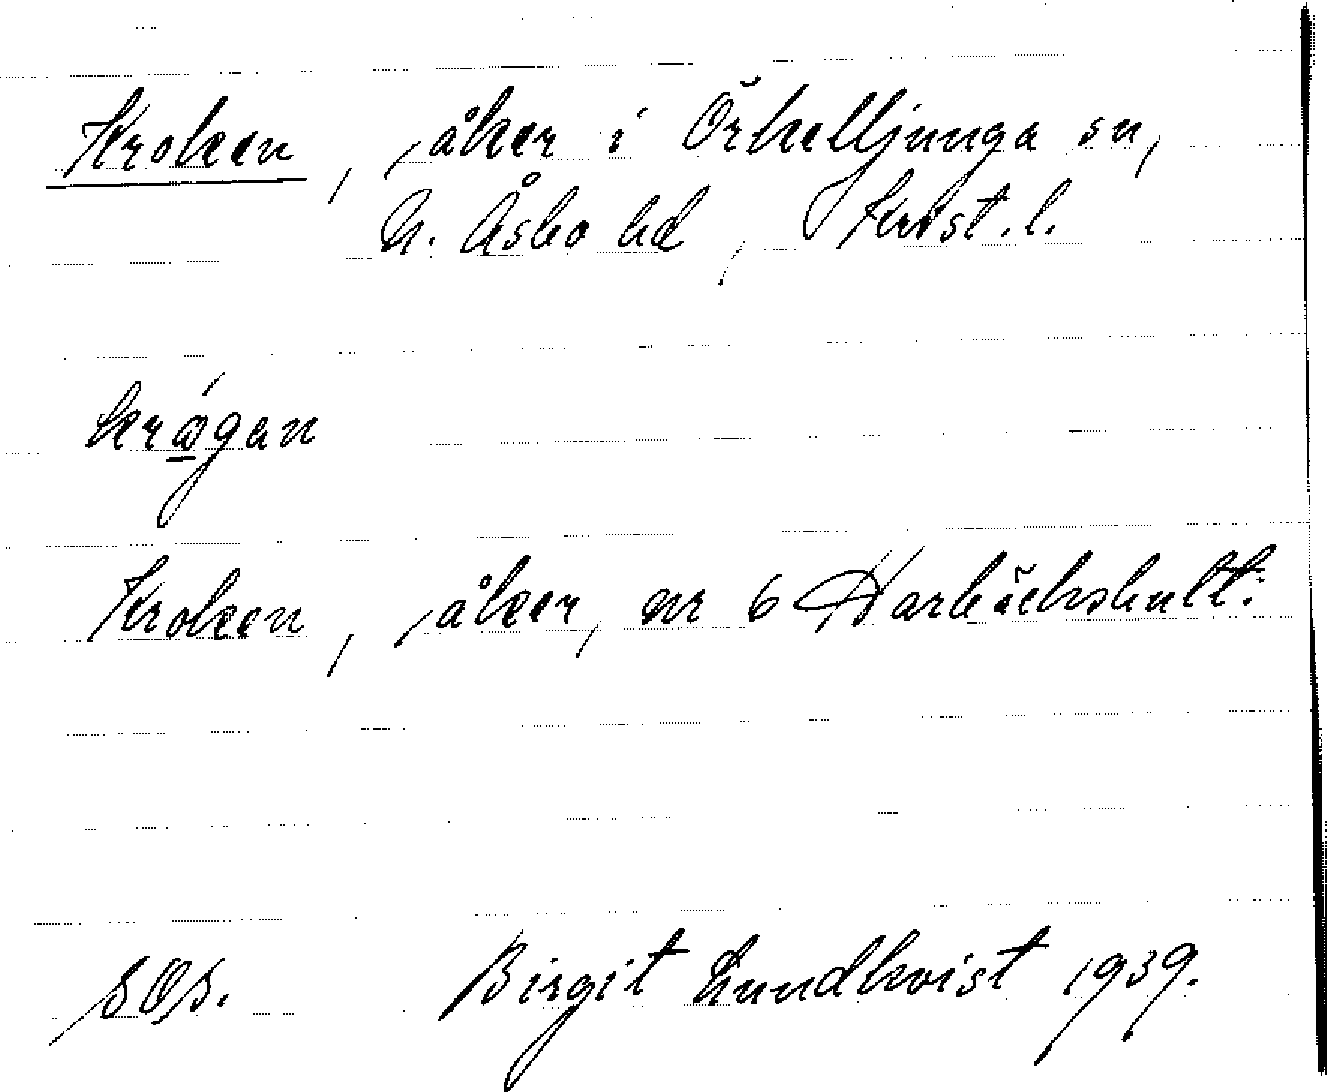 Kroken, åker i Örkelljunga sn,
N. Åsbo hd, Krist. l.
krågan
Kroken, åker, nr 6 Harbäckshult.
SOS. Birgit Lundkvist 1939.